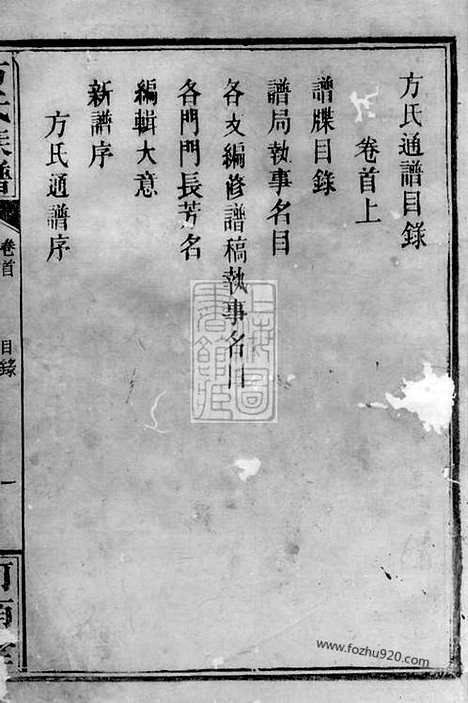 方氏通譜目錄
卷首上
譜牒目錄
譜局執事名目
各支編修譜稿執事名目
各門門長芳名
編輯大意
新譜序
方氏通譜序
方氏族譜
卷首
目錄
一
河南堂
上海圖書館藏
www.fozhu920.com